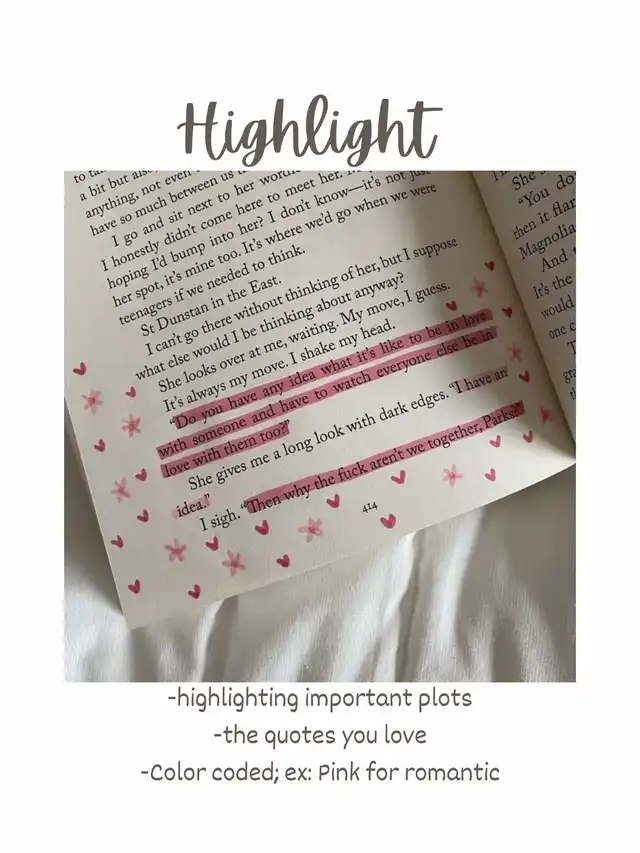 Highlight
a bit but
anything, not even
have so much between us
I go and sit next to her
I honestly didn't come here to meet her.
hoping I'd bump into her? I don't know—it's not just
her spot, it's mine too. It's where we'd go when we were
teenagers if we needed to think.
St Dunstan in the East.
I can't go there without thinking of her, but I suppose
what else would I be thinking about anyway?
She looks over at me, waiting. My move, I guess.
It's always my move. I shake my head.
"Do you have any idea what it's like to be in love
with someone and have to watch everyone else be in
love with them too?"
She gives me a long look with dark edges. "I have an
idea."
I sigh. "Then why the fuck aren't we together, Parks?"
414
She
"You do
then it
Magnolia
And
It's the
would
one
-highlighting important plots
-the quotes you love
-Color coded; ex: Pink for romantic